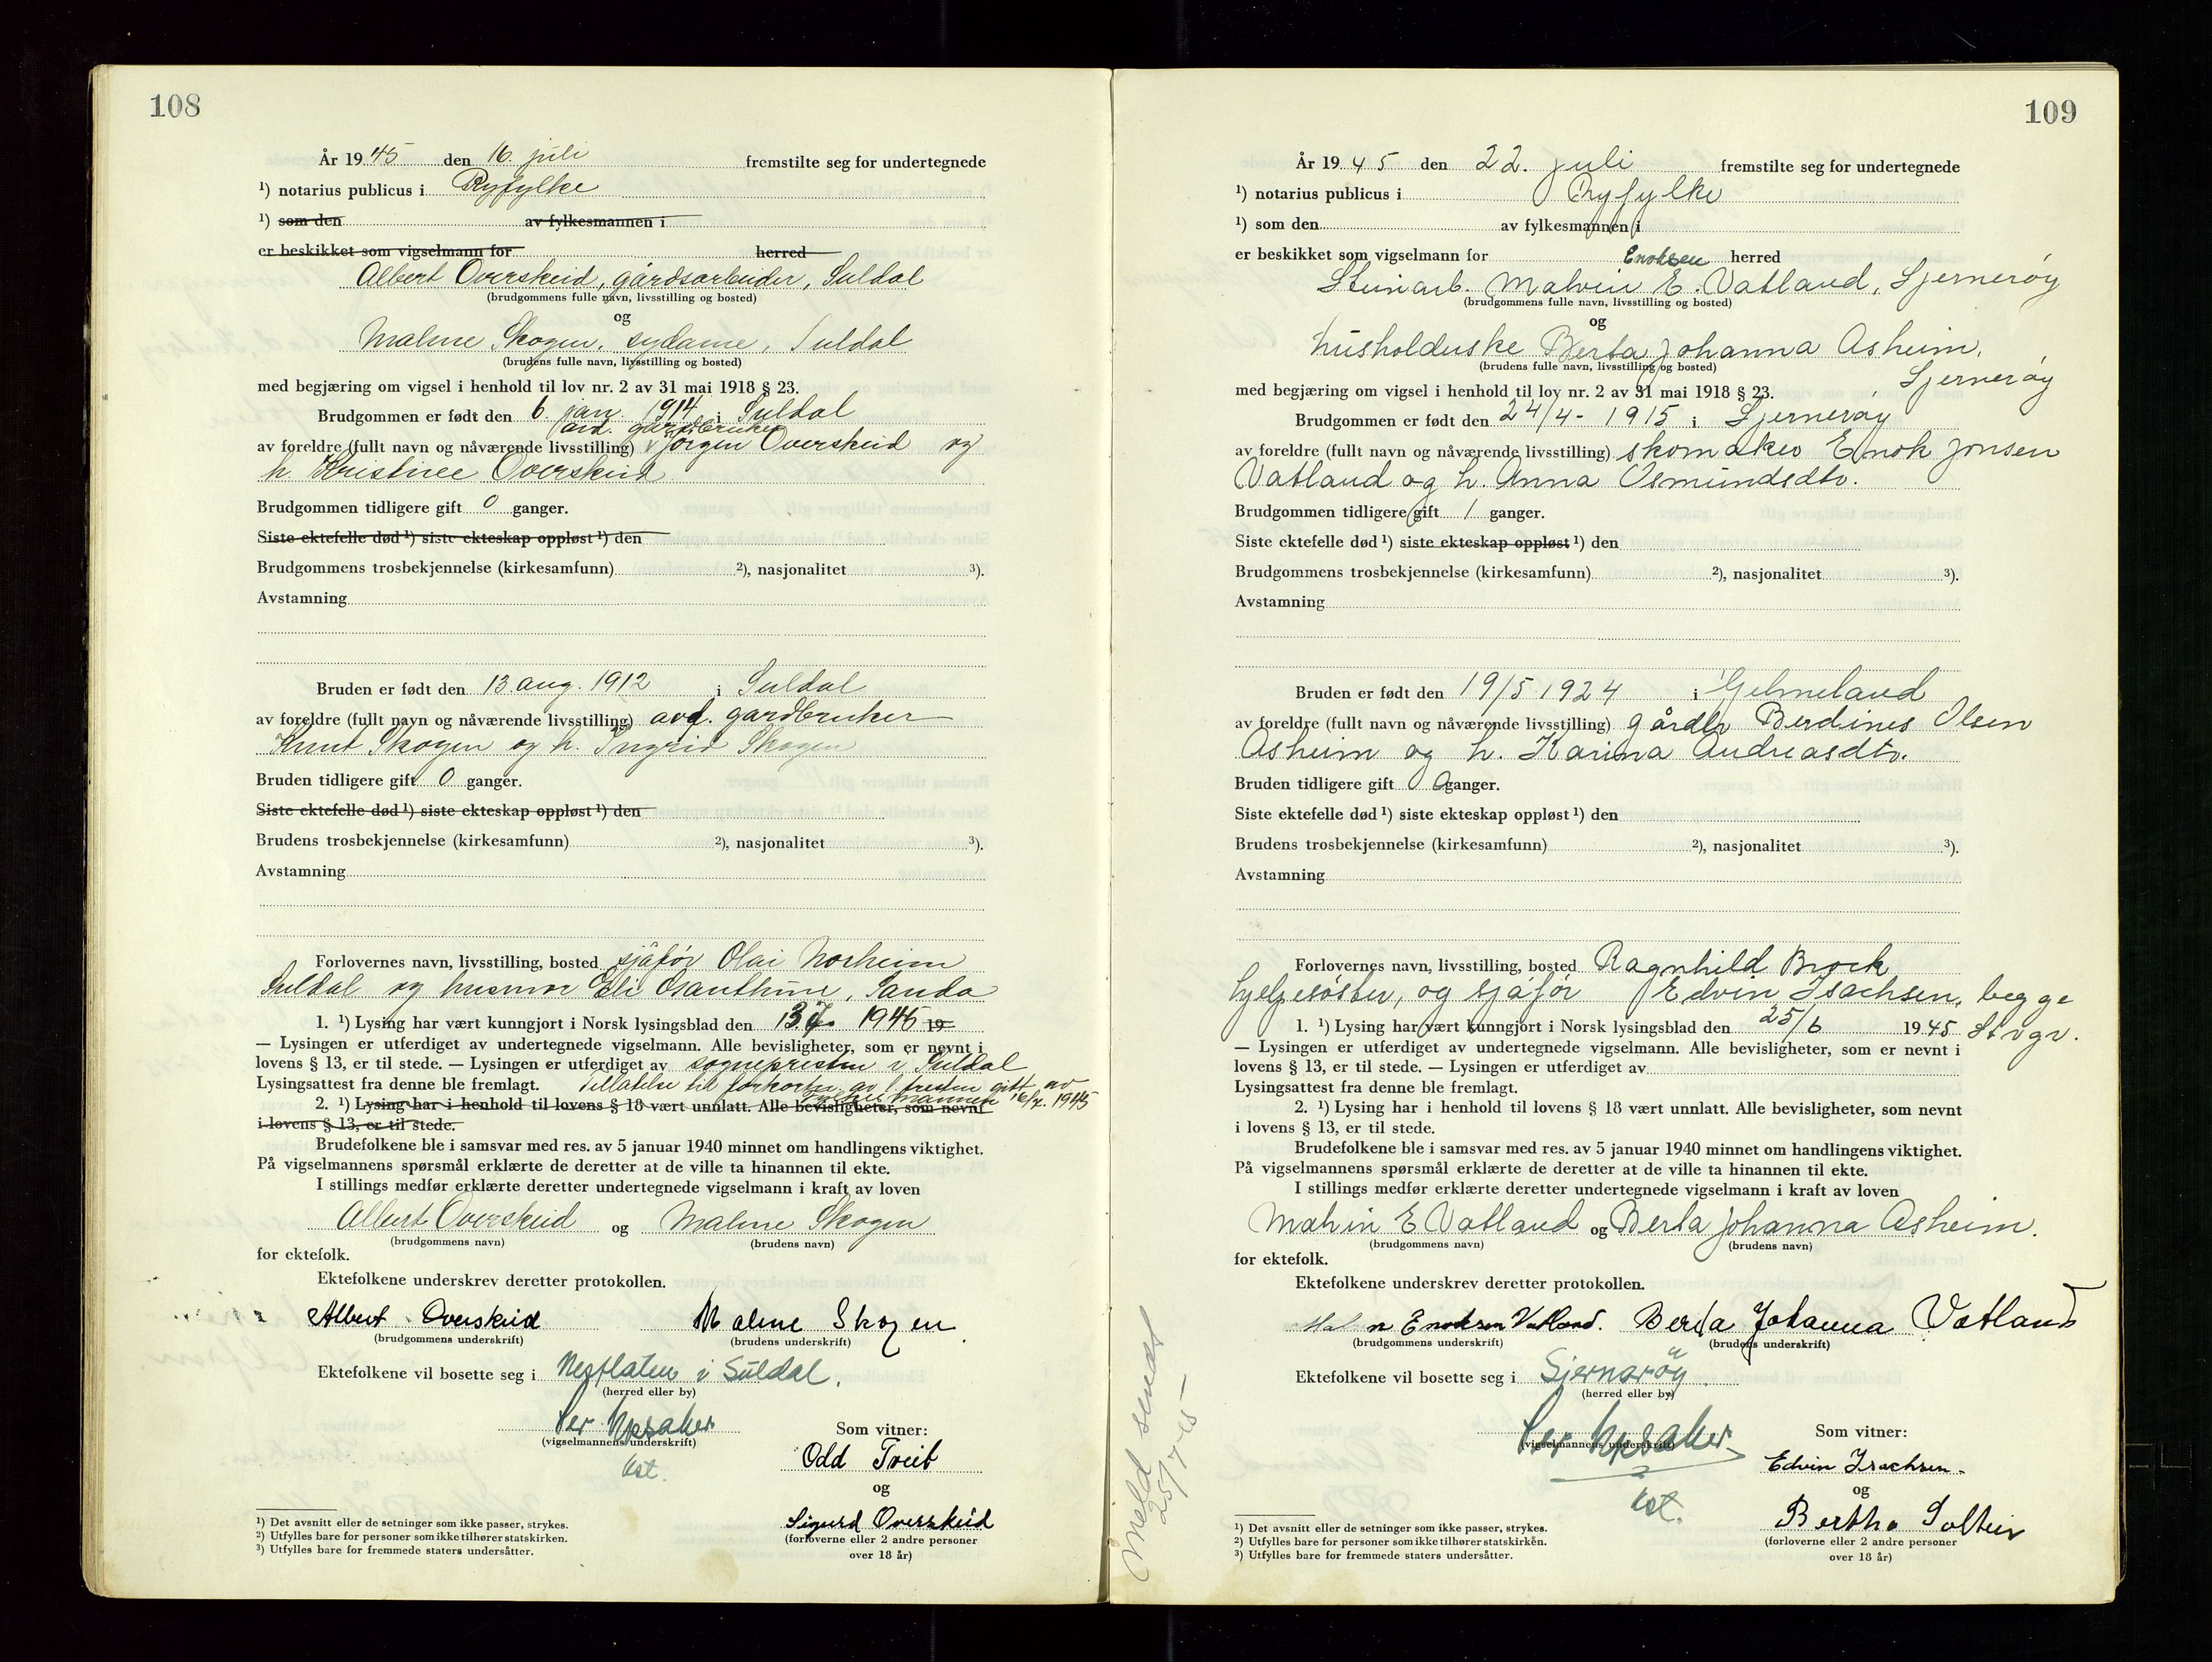 108
År 1945 den 16. juli fremstilte seg for undertegnede
¹) notarius publicus i Ryfylke
¹) som den av fylkesmannen i
er beskikket som vigselmann for herred
Albert Overskeid, gårdsarbeider, Suldal
(brudgommens fulle navn, livsstilling og bosted)
og
Malme Skogen, sydame, Suldal
(brudens fulle navn, livsstilling og bosted)
med begjæring om vigsel i henhold til lov nr. 2 av 31 mai 1918 § 23.
Brudgommen er født den 6. jan. 1914 i Suldal
avd. gardbruker
av foreldre (fullt navn og nåværende livsstilling) Jörgen Overskeid og
h. Kristine Overskeid
Brudgommen tidligere gift 0 ganger.
Siste ektefelle død ¹) siste ekteskap oppløst ¹) den
Brudgommens trosbekjennelse (kirkesamfunn) ²), nasjonalitet ³).
Avstamning
Bruden er født den 13 aug. 1912 i Suldal
av foreldre (fullt navn og nåværende livsstilling) avd. gardbruker
Knut Skogen og h. Ingrid Skogen
Bruden tidligere gift 0 ganger.
Siste ektefelle død ¹) siste ekteskap oppløst ¹) den
Brudens trosbekjennelse (kirkesamfunn) ²), nasjonalitet ³).
Avstamning
Forlovernes navn, livsstilling, bosted sjåför Olai Norheim
Suldal og husmor Eli Osanthun, Sanda
1. ¹) Lysing har vært kunngjort i Norsk lysingsblad den 13.7. 1945 19
— Lysingen er utferdiget av undertegnede vigselmann. Alle bevisligheter, som er nevnt i
lovens § 13, er til stede. — Lysingen er utferdiget av sognepresten i Suldal
Lysingsattest fra denne ble fremlagt. Tillatelse til forkortn. av l. fristen gitt av
fylkesmannen 16/7. 1945
2. ¹) Lysing har i henhold til lovens § 18 vært unnlatt. Alle bevisligheter, som nevnt
i lovens § 13, er til stede.
Brudefolkene ble i samsvar med res. av 5 januar 1940 minnet om handlingens viktighet.
På vigselmannens spørsmål erklærte de deretter at de ville ta hinannen til ekte.
I stillings medfør erklærte deretter undertegnede vigselmann i kraft av loven
Albert Overskeid og Malme Skogen
(brudgommens navn) (brudens navn)
for ektefolk.
Ektefolkene underskrev deretter protokollen.
Albert Overskeid Malme Skogen
(brudgommens underskrift) (brudens underskrift)
Ektefolkene vil bosette seg i Nesflaten i Suldal.
(herred eller by)
Per Upsaker
(vigselmannens underskrift)
kst.
Som vitner:
Odd Treit
og
Sigurd Overskeid
(forloverne eller 2 andre personer
over 18 år)
¹) Det avsnitt eller de setninger som ikke passer, strykes.
²) Utfylles bare for personer som ikke tilhører statskirken.
³) Utfylles bare for fremmede staters undersåtter.
109
År 1945 den 22. juli fremstilte seg for undertegnede
¹) notarius publicus i Ryfylke
¹) som den av fylkesmannen i
er beskikket som vigselmann for herred
Enoksen
Steinarb. Malvin E. Vatland, Sjernerøy
(brudgommens fulle navn, livsstilling og bosted)
og
husholderske Berta Johanna Asheim,
(brudens fulle navn, livsstilling og bosted)
Sjernerøy
med begjæring om vigsel i henhold til lov nr. 2 av 31 mai 1918 § 23.
Brudgommen er født den 24/4 - 1915 i Sjernerøy
av foreldre (fullt navn og nåværende livsstilling) skomaker Enok Jonsen
Vatland og h. Anna Osmundsdtr.
Brudgommen tidligere gift 1 ganger.
Siste ektefelle død ¹) siste ekteskap oppløst ¹) den
Brudgommens trosbekjennelse (kirkesamfunn) ²), nasjonalitet ³).
Avstamning
Bruden er født den 19/5 1924 i Hjelmeland
av foreldre (fullt navn og nåværende livsstilling) gårdbr Berdines Olsen
Asheim og h. Karina Andreasdtr.
Bruden tidligere gift 0 ganger.
Siste ektefelle død ¹) siste ekteskap oppløst ¹) den
Brudens trosbekjennelse (kirkesamfunn) ²), nasjonalitet ³).
Avstamning
Forlovernes navn, livsstilling, bosted Ragnhild Brock
hjelpesøster, og sjåfør Edvin Isachsen, begge
Stvgr.
1. ¹) Lysing har vært kunngjort i Norsk lysingsblad den 25/6 1945
— Lysingen er utferdiget av undertegnede vigselmann. Alle bevisligheter, som er nevnt i
lovens § 13, er til stede. — Lysingen er utferdiget av
Lysingsattest fra denne ble fremlagt.
2. ¹) Lysing har i henhold til lovens § 18 vært unnlatt. Alle bevisligheter, som nevnt
i lovens § 13, er til stede.
Brudefolkene ble i samsvar med res. av 5 januar 1940 minnet om handlingens viktighet.
På vigselmannens spørsmål erklærte de deretter at de ville ta hinannen til ekte.
I stillings medfør erklærte deretter undertegnede vigselmann i kraft av loven
Malvin E Vatland og Berta Johanna Asheim.
(brudgommens navn) (brudens navn)
for ektefolk.
Ektefolkene underskrev deretter protokollen.
Enoksen Vatland. Berta Johanna Vatland
(brudgommens underskrift) (brudens underskrift)
Ektefolkene vil bosette seg i Sjernarøy
(herred eller by)
Per Upsaker
(vigselmannens underskrift)
kst.
Som vitner:
Edvin Isachsen
og
Bertha Soltun
(forloverne eller 2 andre personer
over 18 år)
¹) Det avsnitt eller de setninger som ikke passer, strykes.
²) Utfylles bare for personer som ikke tilhører statskirken.
³) Utfylles bare for fremmede staters undersåtter.
Meld sendt
25/7-45-